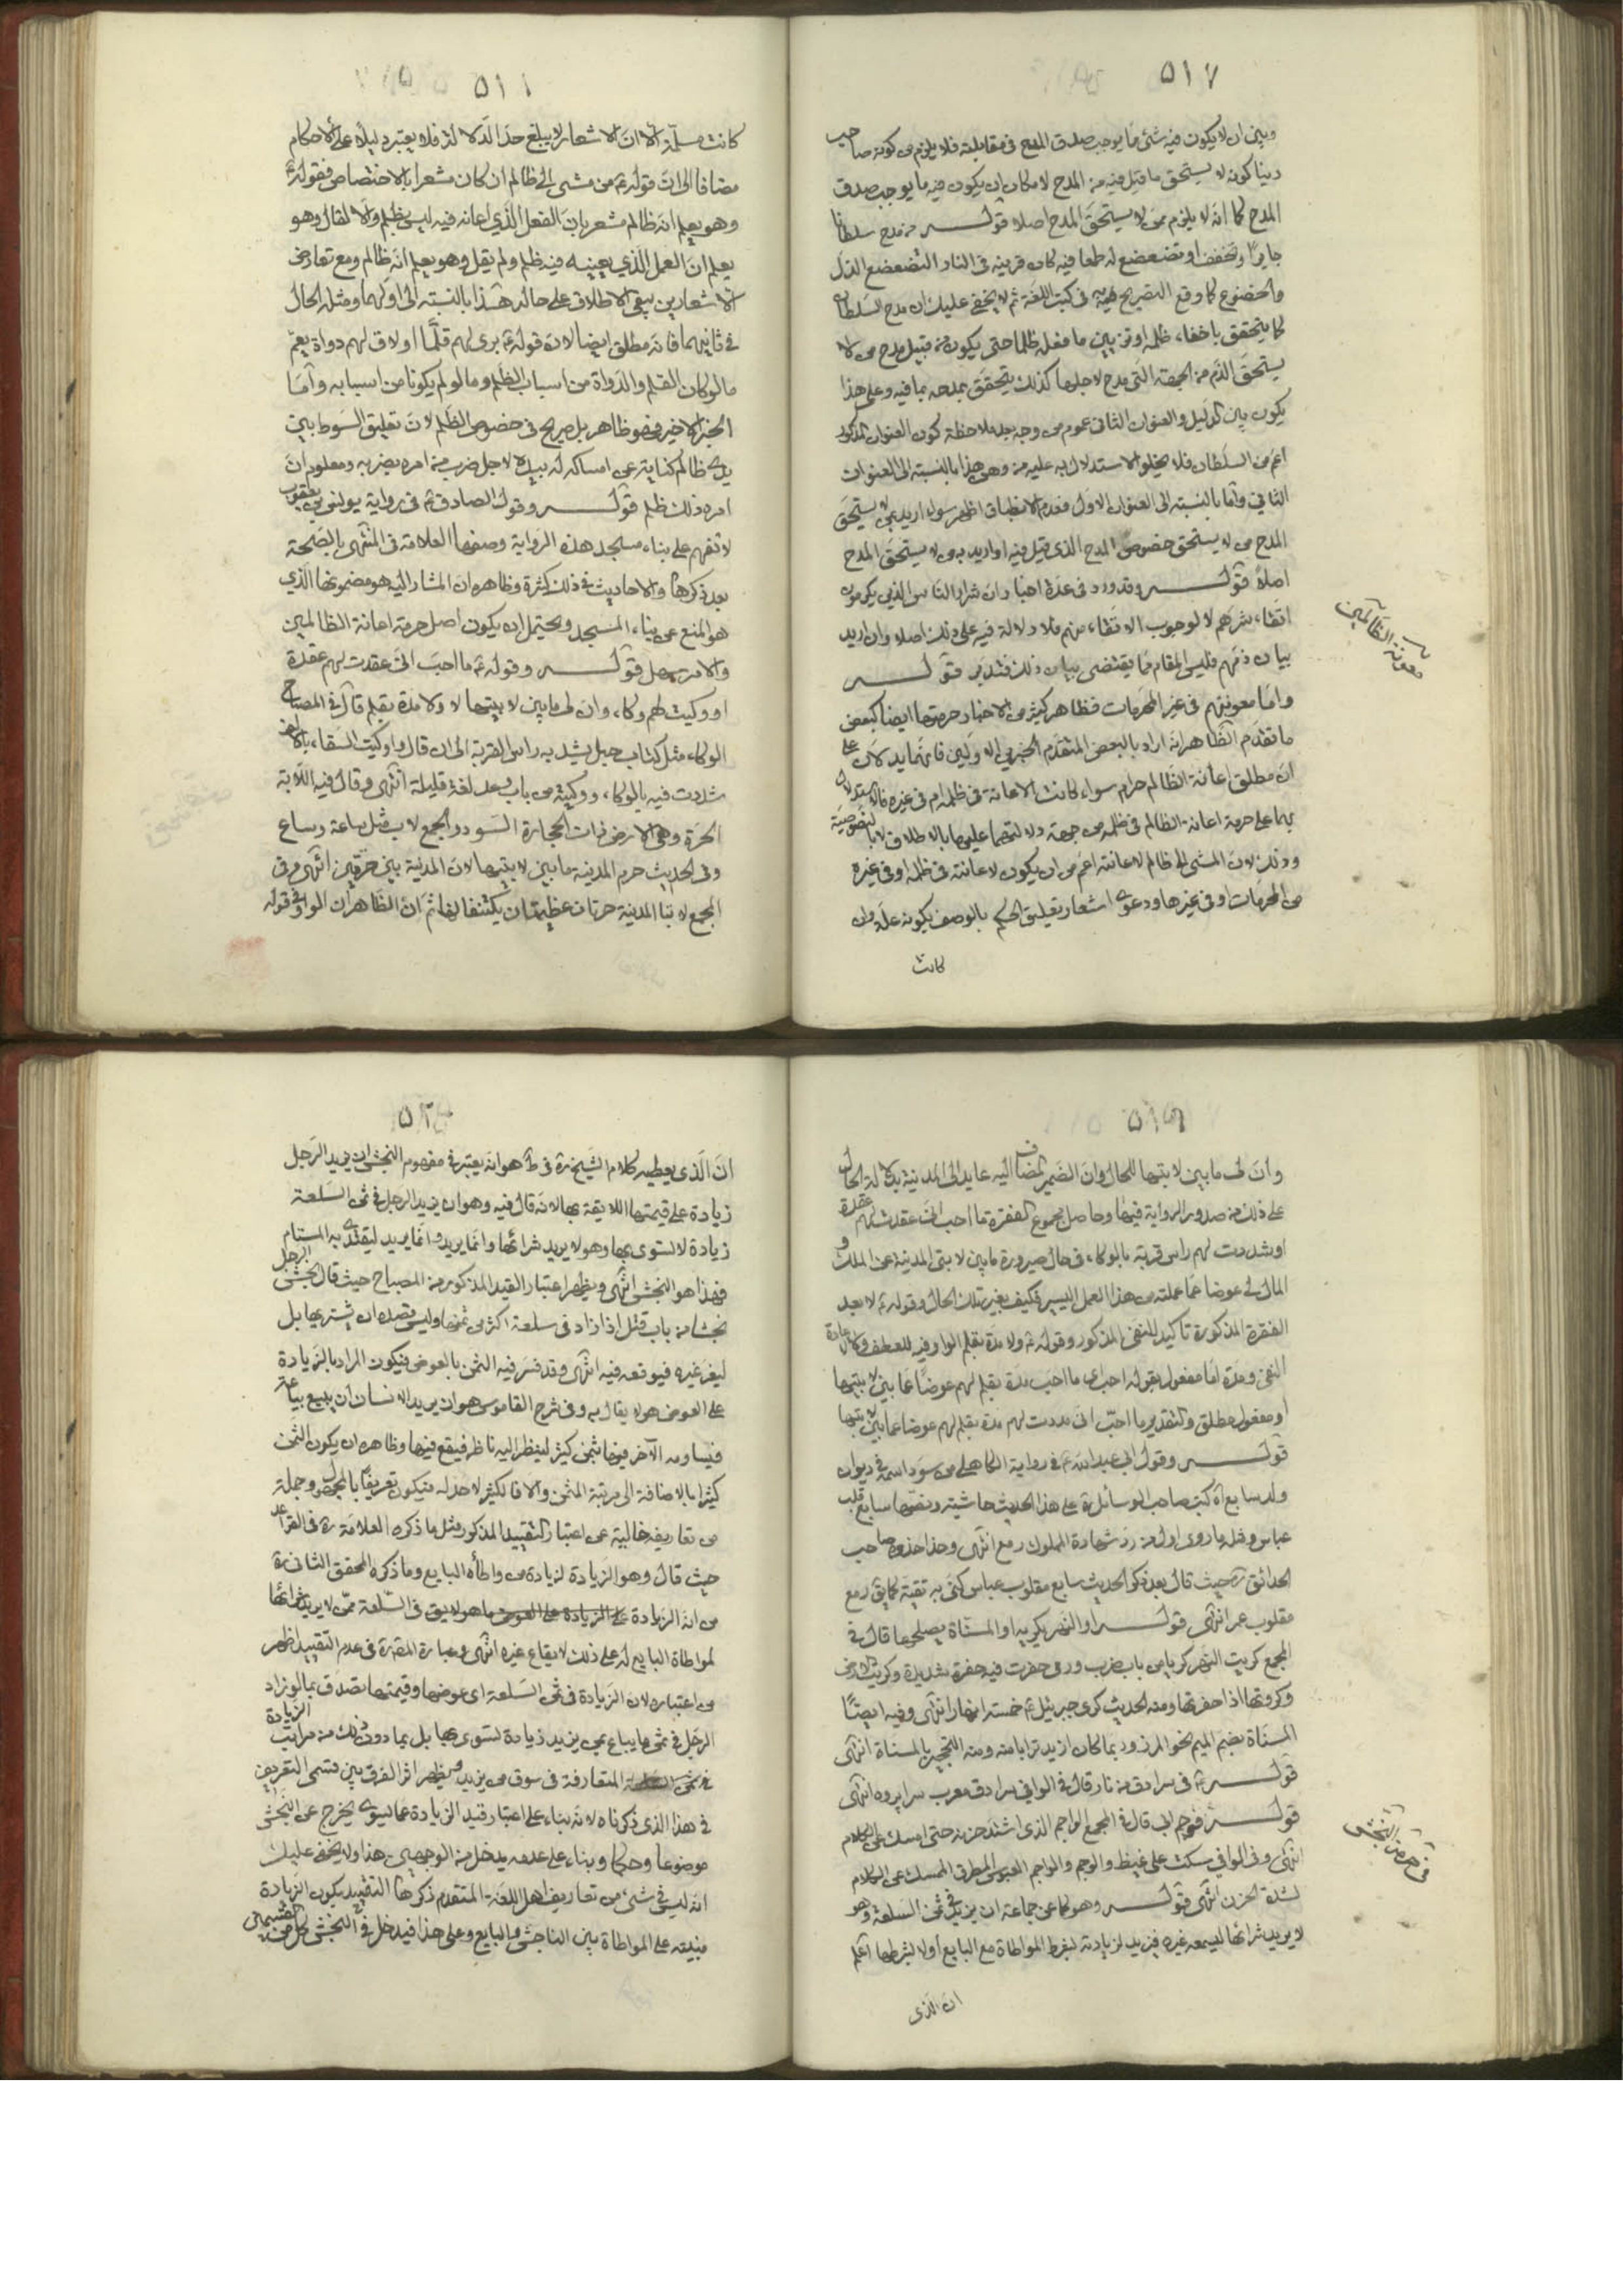 ٥١٧
وبين ان لا يكون فيه شئ مما يوجب صدق المدح فى مقابلته فلا يلزم من كونه صاحب
دينا كونه لا يستحق ما قيل فيه من المدح لامكان ان يكون فيه ما يوجب صدق
المدح كما انه لا يلزم ممن لا يستحق المدح اصلا قولــه من مدح سلطانا
جايرا وتخفف او تضعضع له طمعا فيه كان قرينه فى النار التضعضع الذل
والخضوع كما وقع التصريح به فى كتب اللغة ثم لا يخفى عليك ان مدح السلطان
كما يتحقق باخفاء ظلمه او تزيين ما فعله ظلما حتى يكون من قبيل مدح من لا
يستحق الذم من الجهة التى مدح لاجلها كذلك يتحقق بمدحه بما فيه وعلى هذا
يكون بين الدليل والعنوان الثانى عموم من وجه بملاحظة كون العنوان المذكور
اعم من السلطان فلا يخلو الاستدلال به عليه من وهن هذا بالنسبة الى العنوان
الثانى واما بالنسبة الى العنوان الاول فعدم الانطباق اظهر سواء اريد بمن لا يستحق
المدح من لا يستحق خصوص المدح الذى قيل فيه او اريد به من لا يستحق المدح
اصلا قولــه وقد ورد فى عدة اخبار ان شرار الناس الذين يكرمون
اتقاء شرهم لا لوجوب الاتقاء منهم فلا دلالة فيه على ذلك اصلا وان اريد
بيان ذمهم فليس المقام مما يقتضى بيان ذلك فتدبر قولــه
واما معونتهم فى غير المحرمات فظاهر كثير من الاخبار حرمتها ايضا كبعض
ما تقدم الظاهر انه اراد بالبعض المتقدم الخبرين الاولين فانهما يدلان على
ان مطلق اعانة الظالم حرام سواء كانت الاعانة فى ظلمه ام فى غيره فالاستدلال
بهما على حرمة اعانة الظالم فى ظلمه من جهة دلالتهما عليها بالاطلاق لا بالخصوصية
وذلك لان المشى الى ظالم لاعانته اعم من ان يكون لاعانته فى ظلمه او فى غيره
من المحرمات او فى غيرها ودعوى اشعار تعليق الحكم بالوصف بكونه علة وان
كانت
معونة الظالمين
٥١٨
كانت مسلمة الا ان الاشعار لا يبلغ حد الدلالة فلا يعتبر دليلا على الاحكام
مضافا الى ان قوله ع من مشى الى ظالم ان كان مشعرا بالاختصاص فقوله ع
وهو يعلم انه ظالم مشعر بان الفعل الذى اعانه فيه ليس بظلم والا لقال وهو
يعلم ان العمل الذى يعينه فيه ظلم ولم يقل وهو يعلم انه ظالم ومع تعارض
الاشعارين يبقى الاطلاق على حاله هذا بالنسبة الى اولهما ومثله الحال
فى ثانيهما فانه مطلق ايضا لان قوله ع برى لهم قلما او لاق لهم دواة يعم
ما لو كان القلم والدواة من اسباب الظلم وما لو لم يكونا من اسبابه واما
الخبر الاخير فهو ظاهر بل صريح فى خصوص الظلم لان تعليق السوط بين
يدى ظالم كناية عن امساكه له بيده لاجل ضرب من امره بضربه ومعلوم ان
امره ذلك ظلم قولــه وقول الصادق ع فى رواية يونس بن يعقوب
لا تعنهم على بناء مسجد هذه الرواية وصفها العلامة فى المنتهى بالصحة
بعد ذكرها والاحاديث فى ذلك كثيرة وظاهره ان المشار اليه هو مضمونها الذى
هو المنع عن بناء المسجد ويحتمل ان يكون اصل حرمة اعانة الظالمين
والامر سهل قولــه وقوله ع ما احب انى عقدت لهم عقدة
او وكيت لهم وكاء وان لى ما بين لابتيها لا ولا مدة بقلم قال فى المصباح
الوكاء مثل كتاب حبل يشد به راس القربة الى ان قال واوكيت السقاء بالالف
شددت فمه بالوكاء ووكيته من باب وعد لغة قليلة انتهى وقال فيه اللابة
الحرة وهى الارض ذات الحجارة السود والجمع لاب مثل ساعة وساع
وفى الحديث حرم المدينة ما بين لابتيها لان المدينة بين حرتين انتهى وفى
المجمع لابتا المدينة حرتان عظيمتان يكتنفانها ثم ان الظاهر ان الواو فى قوله
٥١٩
وان لى ما بين لابتيها للحال وان الضمير المضاف اليه عايد الى المدينة بدلالة الحال
على ذلك من صدور الرواية فيها وحاصل مجموع الفقرة ما احب انى عقدت لهم عقدة
او شددت لهم راس قربة بالوكاء فى حال صيرورة ما بين لابتى المدينة من الملك و
المال لى عوضا عما عملته من هذا العمل اليسير فكيف بغير تلك الحال وقوله ع لا بعد
الفقرة المذكورة تاكيد للنفى المذكور وقوله ع ولا مدة بقلم الواو فيه للعطف وكلمة لا لاعادة
النفى ومدة اما مفعول لقوله احب اى ما احب مدة بقلم لهم عوضا عما بين لابتيها
او مفعول مطلق والتقدير ما احب انى مددت لهم مدة بقلم لهم عوضا عما بين لابتيها
قولــه وقول ابى عبد الله ع فى رواية الكاهلى من سود اسمه فى ديوان
ولد سابع آه كتب صاحب الوسائل ره على هذا الحديث حاشية ونصها سابع قلب
عباس ومثله ما روى اول من رد شهادة المملوك رمع انتهى وحذا حذوه صاحب
الحدائق ره حيث قال بعد ذكر الحديث سابع مقلوب عباس كنى به تقية كما يق رمع
مقلوب عمر انتهى قولــه او النهر يكريه او المسناة يصلحها قال فى
المجمع كريت النهر كريا من باب رمى حفرت فيه حفرة جديدة وكريت الارض
وكروتها اذا حفرتها ومنه الحديث كرى جبرئيل ع خمسة انهار انتهى وفيه ايضا
المسناة بضم الميم نحو المرز وربما كان ازيد ترابا منه ومنه التحجير بالمسناة انتهى
قولــه ع فى سرادق من نار قال فى الوافى سرادق معرب سراپرده انتهى
قولــه فوجم ابى قال فى المجمع الواجم الذى اشتد حزنه حتى امسك عن الكلام
انتهى وفى الوافى سكت على غيظ والوجم والواجم العبوس المطرق الممسك عن الكلام
لشدة الحزن انتهى قولــه وهو كما عن جماعة ان يزيد فى ثمن السلعة وهو
لا يريد شرائها ليسمعه غيره فيزيد لزيادته بشرط المواطاة مع البايع او لا بشرطها اعلم
ان الذى
فى حرمة النجش
٥٢٠
ان الذى يعطيه كلام الشيخ ره فى ط هو انه يعتبر فى مفهوم النجش ان يزيد الرجل
زيادة على قيمتها اللايقة بها لانه قال فيه وهو ان يزيد الرجل فى ثمن السلعة
زيادة لا تسوى بها وهو لا يريد شرائها وانما يزيد ليقتدى به المستام
فهذا هو النجش انتهى ويظهر اعتبار القيد المذكور من المصباح حيث قال نجش الرجل
نجشا من باب قتل اذا زاد فى سلعة اكثر من ثمنها وليس قصده ان يشتريها بل
ليغر غيره فيوقعه فيه انتهى وقد فسر فيه الثمن بالعوض فيكون المراد بالزيادة
على العوض هو لا يقال به وفى شرح القاموس هو ان يريد الانسان ان يبيع بياعة
فيساومه الآخر فيها بثمن كثير لينظر اليه ناظر فيقع فيها وظاهره ان يكون الثمن
كثيرا بالاضافة الى مرتبة المثمن والا فالكثير لا حد له فيكون تعريفا بالمجهول وجملة
من تعاريفه خالية عن اعتبار التقييد المذكور مثل ما ذكره العلامة ره فى القواعد
حيث قال وهو الزيادة لزيادة من واطأه البايع وما ذكره المحقق الثانى ره
من انه الزيادة فى السلعة ممن لا يريد شرائها
لمواطاة البايع له على ذلك لايقاع غيره انتهى وعبارة المص ره فى عدم التقييد اظهر
من اعتباره لان الزيادة فى ثمن السلعة اى عوضها وقيمتها تصدق بما لو زاد
الرجل فى ثمن ما يباع بمن يزيد زيادة تسوى بها بل بما دون ذلك من مراتب الزيادة
فى ثمن المتعارفة فى سوق من يزيد ويظهر اثر الفرق بين قسمى التعريف
فى هذا الذى ذكرناه لانه بناء على اعتبار قيد الزيادة عما يسوى يخرج عن النجش
موضوعا وحكما وبناء على عدمه يدخل من الوجهين هذا ولا يخفى عليك
انه ليس فى شئ من تعاريف اهل اللغة المتقدم ذكرها التقييد بكون الزيادة
مبنية على المواطاة بين الناجش والبايع وعلى هذا فيدخل فى النجش كل من قسميه